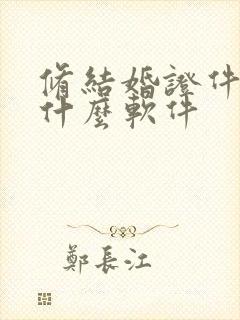 脩結婚證件
什麼軟件
鄭長江